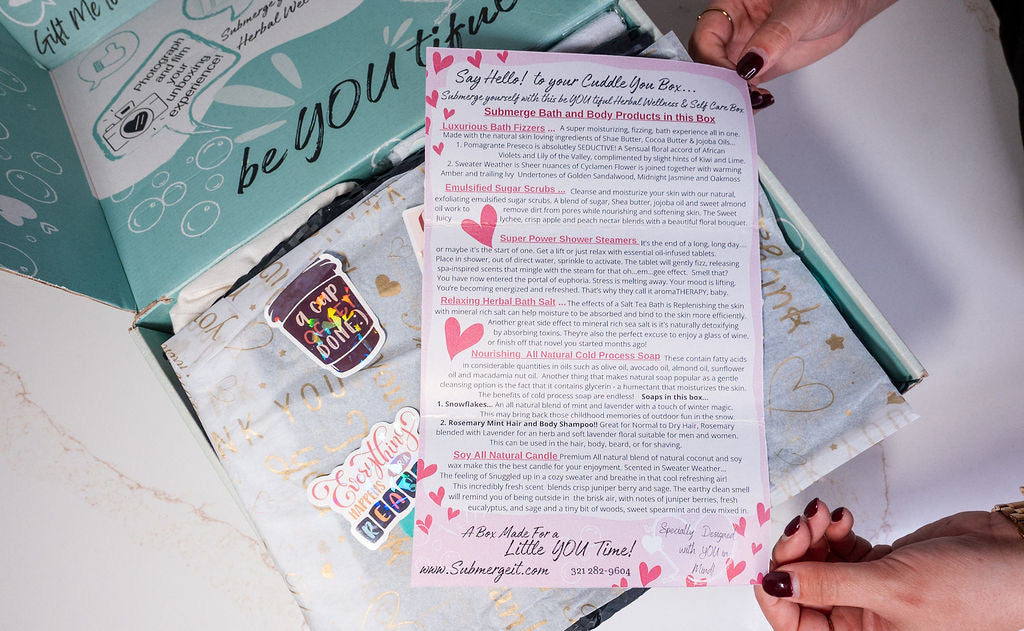 Gift Me To
Submerge y
Herbal Wel
Photograph
and film
your
unboxing
experience!
be YOU tiful
Say Hello! to your Cuddle You Box...
Submerge yourself with this be YOU tiful Herbal Wellness & Self Care Box
Submerge Bath and Body Products in this Box
Luxurious Bath Fizzers ... A super moisturizing, fizzing, bath experience all in one.
Made with the natural skin loving ingredients of Shae Butter, Cocoa Butter & Jojoba Oils...
1. Pomagrante Preseco is absolutley SEDUCTIVE! A Sensual floral accord of African
Violets and Lily of the Valley, complimented by slight hints of Kiwi and Lime.
2. Sweater Weather is Sheer nuances of Cyclamen Flower is joined together with warming
Amber and trailing Ivy Undertones of Golden Sandalwood, Midnight Jasmine and Oakmoss
Emulsified Sugar Scrubs ... Cleanse and moisturize your skin with our natural,
exfoliating emulsified sugar scrubs. A blend of sugar, Shea butter, jojoba oil and sweet almond
oil work to remove dirt from pores while nourishing and softening skin. The Sweet
Juicy lychee, crisp apple and peach nectar blends with a beautiful floral bouquet.
Super Power Shower Steamers. It's the end of a long, long day...
or maybe it's the start of one. Get a lift or just relax with essential oil-infused tablets.
Place in shower, out of direct water, sprinkle to activate. The tablet will gently fizz, releasing
spa-inspired scents that mingle with the steam for that oh...em...gee effect. Smell that?
You have now entered the portal of euphoria. Stress is melting away. Your mood is lifting.
You're becoming energized and refreshed. That's why they call it aromaTHERAPY, baby.
Relaxing Herbal Bath Salt ... The effects of a Salt Tea Bath is Replenishing the skin
with mineral rich salt can help moisture to be absorbed and bind to the skin more efficiently.
Another great side effect to mineral rich sea salt is it's naturally detoxifying
by absorbing toxins. They're also the perfect excuse to enjoy a glass of wine,
or finish off that novel you started months ago!
Nourishing All Natural Cold Process Soap These contain fatty acids
in considerable quantities in oils such as olive oil, avocado oil, almond oil, sunflower
oil and macadamia nut oil. Another thing that makes natural soap popular as a gentle
cleansing option is the fact that it contains glycerin - a humectant that moisturizes the skin.
The benefits of cold process soap are endless! Soaps in this box...
1. Snowflakes... An all natural blend of mint and lavender with a touch of winter magic.
This may bring back those childhood memories of outdoor fun in the snow.
2. Rosemary Mint Hair and Body Shampoo!! Great for Normal to Dry Hair, Rosemary
blended with Lavender for an herb and soft lavender floral suitable for men and women.
This can be used in the hair, body, beard, or for shaving.
Soy All Natural Candle Premium All natural blend of natural coconut and soy
wax make this the best candle for your enjoyment. Scented in Sweater Weather...
The feeling of Snuggled up in a cozy sweater and breathe in that cool refreshing air!
This incredibly fresh scent blends crisp juniper berry and sage. The earthy clean smell
will remind you of being outside in the brisk air, with notes of juniper berries, fresh
eucalyptus, and sage and a tiny bit of woods, sweet spearmint and dew mixed in
A Box Made For a
Little YOU Time!
www.Submergeit.com 321 282-9604
Specially Designed
with YOU in
Mind!
a cup
DONE!
Everything
HAPPENS